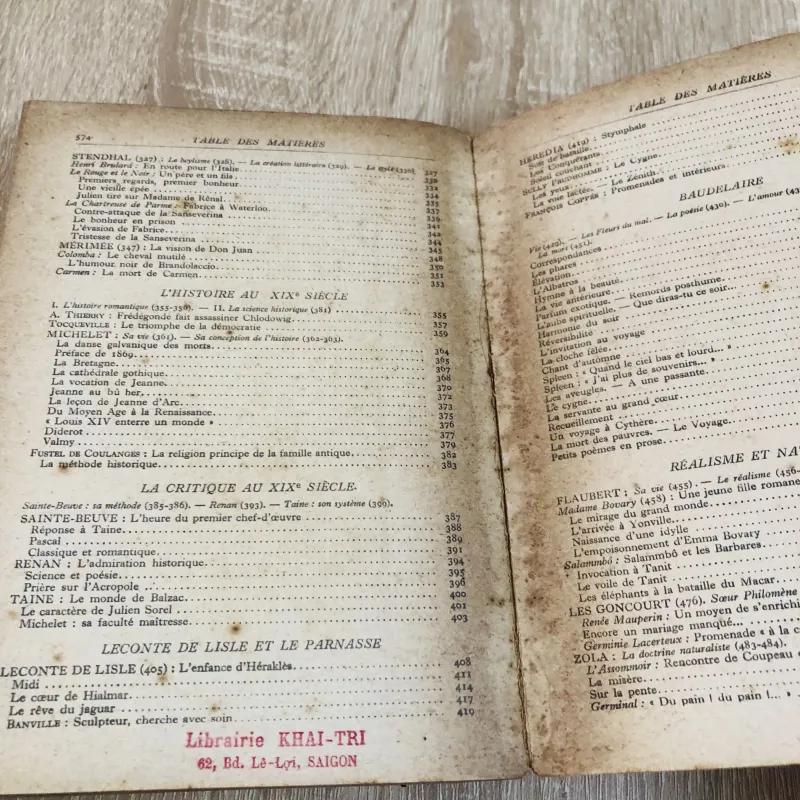 574
TABLE DES MATIÈRES
STENDHAL (327) : Le beylisme (328). — La création littéraire (329). — Le style (330). 327
Henri Brulard : En route pour l'Italie 330
Le Rouge et le Noir : Un père et un fils 332
Premiers regards, premier bonheur 334
Une vieille épée
Julien tire sur Madame de Rênal
La Chartreuse de Parme : Fabrice à Waterloo
Contre-attaque de la Sanseverina
Le bonheur en prison
L'évasion de Fabrice
Tristesse de la Sanseverina
MÉRIMÉE (347) : La vision de Don Juan
Colomba : Le cheval mutilé
L'humour noir de Brandolaccio
Carmen : La mort de Carmen 353
L'HISTOIRE AU XIXe SIÈCLE
I. L'histoire romantique (355-358). — II. La science historique (381)
A. THIERRY : Frédégonde fait assassiner Chlodowig 355
TOCQUEVILLE : Le triomphe de la démocratie 357
MICHELET : Sa vie (361). — Sa conception de l'histoire (362-363). 359
La danse galvanique des morts
Préface de 1869 364
La Bretagne 365
La cathédrale gothique 367
La vocation de Jeanne 368
Jeanne au bû her 370
La leçon de Jeanne d'Arc 372
Du Moyen Age à la Renaissance 373
« Louis XIV enterre un monde » 375
Diderot 376
Valmy 377
379
FUSTEL DE COULANGES : La religion principe de la famille antique 382
La méthode historique 383
LA CRITIQUE AU XIXe SIÈCLE
Sainte-Beuve : sa méthode (385-386). — Renan (393). — Taine : son système (399).
SAINTE-BEUVE : L'heure du premier chef-d'œuvre 387
Réponse à Taine 388
Pascal 389
Classique et romantique 391
RENAN : L'admiration historique 394
Science et poésie 395
Prière sur l'Acropole 396
TAINE : Le monde de Balzac 400
Le caractère de Julien Sorel 401
Michelet : sa faculté maîtresse 403
LECONTE DE LISLE ET LE PARNASSE
LECONTE DE LISLE (405) : L'enfance d'Héraklès 408
Midi 411
Le cœur de Hialmar 414
Le rêve du jaguar 417
BANVILLE : Sculpteur, cherche avec soin 419
Librairie KHAI-TRI
62, Bd. Lê-Lợi, SAIGON
TABLE DES MATIÈRES
HEREDIA (419) : Stymphale
Soir de bataille
Les Conquérants
Soleil couchant
SULLY PRUDHOMME : Le Cygne
Les yeux
La voie lactée. — Le Zénith
FRANÇOIS COPPÉE : Promenades et intérieurs
BAUDELAIRE
Vie (429). — Les Fleurs du mal. — La poésie (430). — L'amour
La mort (451).
Correspondances
Les phares
Élévation
L'Albatros
Hymne à la beauté
La vie antérieure
Parfum exotique. — Remords posthume
L'aube spirituelle. — Que diras-tu ce soir...
Harmonie du soir
Réversibilité
L'invitation au voyage
La cloche fêlée
Chant d'automne
Spleen : « Quand le ciel bas et lourd... »
Spleen : « J'ai plus de souvenirs... »
Les aveugles. — A une passante
Le cygne
La servante au grand cœur
Recueillement
Un voyage à Cythère
La mort des pauvres. — Le Voyage
Petits poèmes en prose
RÉALISME ET NA
FLAUBERT : Sa vie (455). — Le réalisme (456-
Madame Bovary (458) : Une jeune fille romane
Le mirage du grand monde
L'arrivée à Yonville
Naissance d'une idylle
L'empoisonnement d'Emma Bovary
Salammbô : Salammbô et les Barbares
Invocation à Tanit
Le voile de Tanit
Les éléphants à la bataille du Macar
LES GONCOURT (476). Sœur Philomène
Renée Mauperin : Un moyen de s'enrichi
Encore un mariage manqué...
Germinie Lacerteux : Promenade « à la c
ZOLA : La doctrine naturaliste (483-484).
L'Assommoir : Rencontre de Coupeau
La misère
Sur la pente
Germinal : « Du pain ! du pain !... »